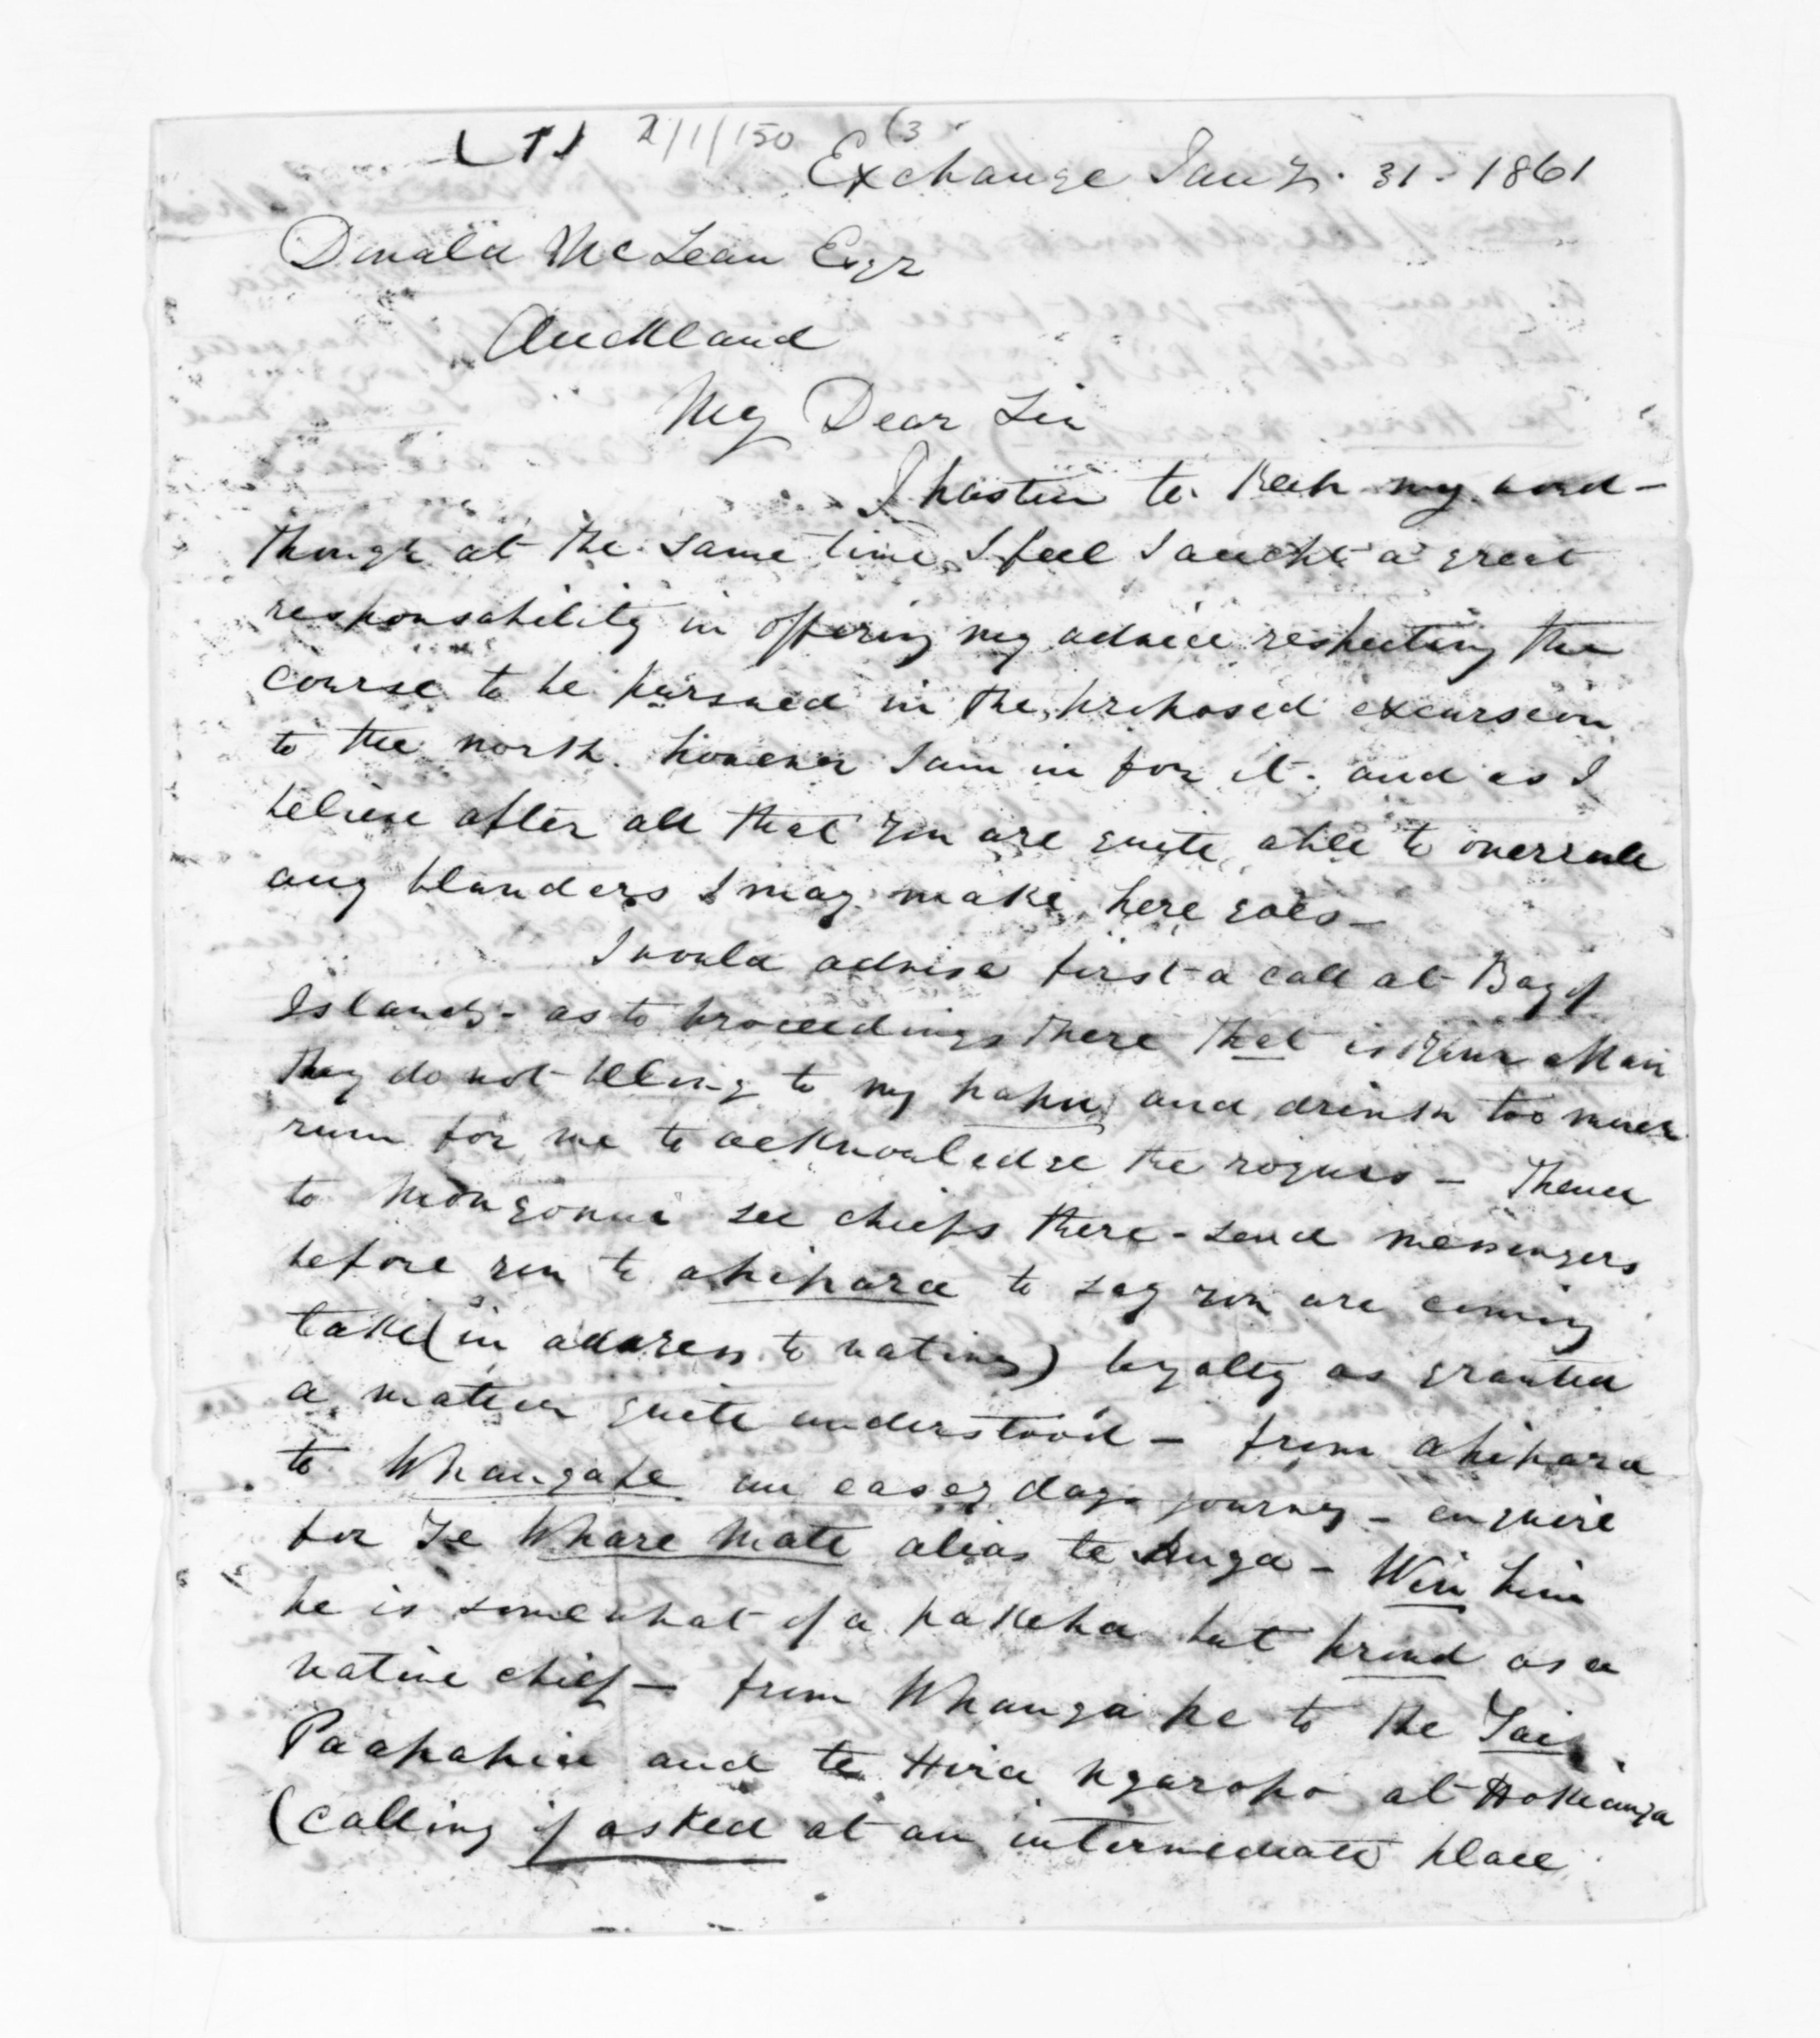 (1) 2/1/150 (3
Exchange Jany. 31. 1861
Donald McLean Esqr
Auckland
My Dear Sir
I hasten to keep my word -
though at the same time I feel I a great
responsability in offering my advice respecting the
course to be pursued in the proposed excursion
to the north. however I am in for it. and as I
believe after all that you are quite able to overrule
any blunders I may make, here goes -
I would advise first a call at Bay of
Islands - as to proceedings there that is your affair
they do not belong to my hapu and drink too much
rum for me to acknowledge the rogues - Thence
to Mongonui see chiefs there - send messengers
before you to ahipara to say you are coming
take (in address to natives) loyalty as granted
a matter quite understood - from ahipara
to Whangape an easey days journey - enquire
for Te Whare Mate alias te Huga - Win him
he is somewhat of a pakeha but proud as a
native chief - from Whanga pe to the Tai
Paapahia and te Hira Ngaropo at Hokianga
(calling if asked at an intermediate place